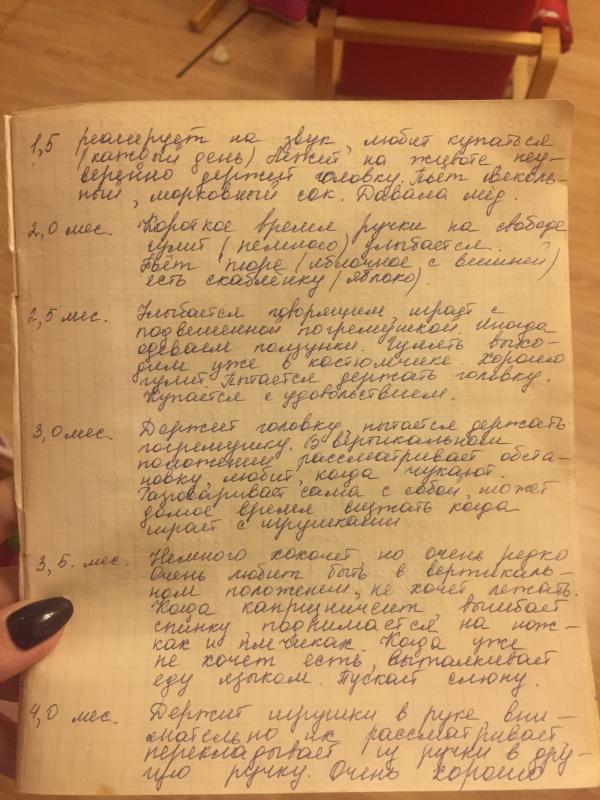 1,5 реагирует на звук, любит купаться
(каждый день) Лежит на животе неу-
веренно держит головку. Пьёт свеколь-
ный, морковный сок. Давала мёд.
2,0 мес. Короткое время ручки на свободе
гулит (немного) улыбается.
Пьёт пюре (яблочное с вишней)
есть скаблёнку (яблоко).
2,5 мес. Улыбается говорящим, играет с
подвешенной погремушкой. Иногда
одеваем ползунки. Гулять выхо-
дим уже в костюмчике. Хорошо
гулит. Пытается держать головку.
Купается с удовольствием.
3,0 мес. Держит головку, пытается держать
погремушку. В вертикальном
положении рассматривает обста-
новку, любит, когда чукают.
Разговаривает сама с собой, может
долгое время визжать когда
играет с игрушками
3,5. мес. Немного хохочет но очень редко
Очень любит быть в вертикаль-
ном положении, не хочет лежать.
Когда капризничает выгибает
спинку, поднимается на нож-
ках и плечиках. Когда уже
не хочет есть, выталкивает
еду языком. Пускает слюну.
4,0 мес. Держит игрушки в руке, вни-
мательно их рассматривает,
перекладывает из ручки в дру-
гую ручку. Очень хорошо